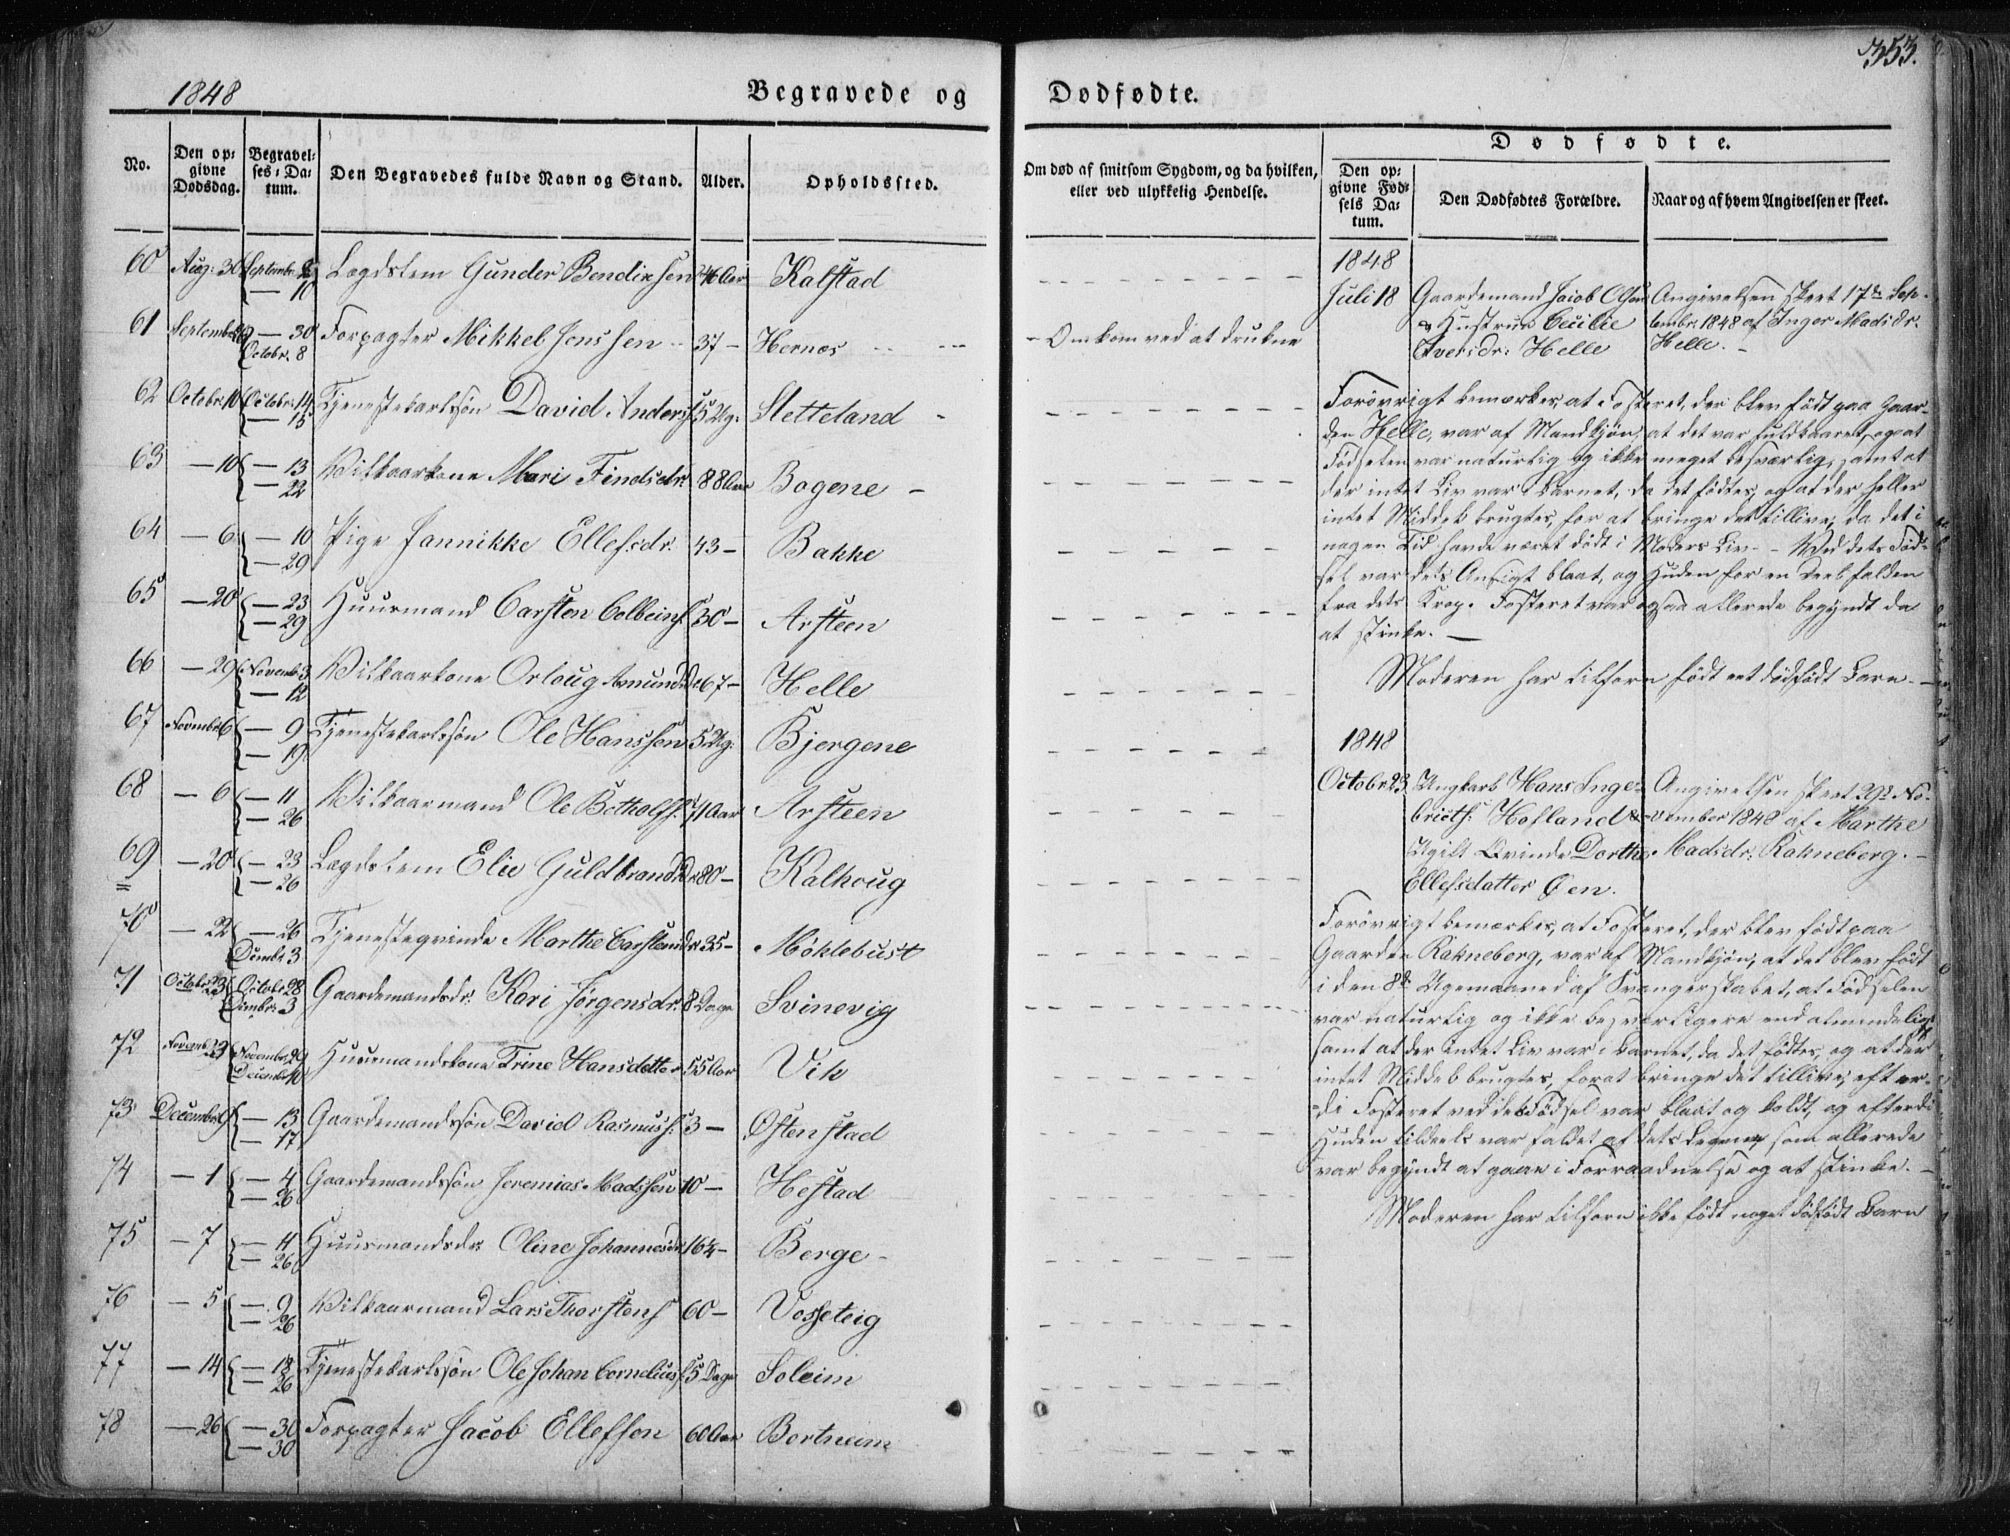 353.
1848 Begravede og Dødfødte.
No. Den opgivne Dødsdag. Begravelses-Datum. Den Begravedes fulde Navn og Stand. Alder. Opholdssted.
Om død af smitsom Sygdom, og da hvilken, eller ved ulykkelig Hendelse.
Dødfødte.
Den opgivne Fødsels Datum. Den Dødfødtes Forældre. Naar og af hvem Angivelsen er skeet.
60 Aug: 30 Septembr. — 10 Lægdslem Gunder Bendixsen 46 Aar Kalstad
61 Septembr. — 30 Octobr. 8 Forpagter Mikkel Jenssen 37 — Hernæs — Omkom ved at drukne
62 Octobr. 10 Octobr. 14 — 15 Tjenestekarlssøn David Anders. 5 Ug: Sletteland
63 — 10 — 13 — 22 Vilkaarkone Mari Findsdr. 88 Aar Bogene
64 — 6 — 10 — 29 Pige Jannikke Ellefsdr. 43 — Bakke
65 — 20 — 23 — 29 Huusmand Carsten Colbeins. 30 — Arsteen
66 — 29 Novembr. 3 — 12 Vilkaarkone Orloug Amundsdr. 67 — Helle
67 Novembr. 6 — 9 — 19 Tjenestekarlssøn Ole Hanssen 5 Ug: Bjergene
68 — 6 — 11 — 26 Vilkaarmand Ole Botholfs. 71 Aar Arsteen
69 — 20 — 23 — 26 Lægdslem Elie Guldbrandsdr. 80 — Kalhoug
70 — 22 — 26 Dcembr. 3 Tjenesteqvinde Marthe Carstensdr. 35 — Møklebust
71 Octobr. 23 Octobr. 28 Dcembr. 3 Gaardemandsdr. Kari Jørgensdr. 8 Dage Svinevig
72 Novembr. 23 Novembr. 29 Decembr. 10 Huusmandskone Trine Hansdatter 55 Aar Vik
73 Decembr. 9 — 13 — 17 Gaardemandssøn David Rasmuss. 3 — Østenstad
74 — 1 — 4 — 26 Gaardemandssøn Jeremias Madssen 10 — Hestad
75 — 7 — 11 — 26 Huusmandsdr. Oline Johannesdr. 16¼ — Berge
76 — 5 — 9 — 26 Vilkaarmand Lars Thorstens. 60 — Vosseteig
77 — 14 — 18 — 26 Tjenestekarlssøn Ole Johan Cornelius. 5 Dage Soleim
78 — 26 — 30 — 30 Forpagter Jacob Ellefsen 60 Aar Bortneim
1848
Juli 18 Gaardemand Jacob Olsen
& Hustrue Cecilie
Iversdr: Helle
Angivelsen skeet 17de Sep-
tembr. 1848 af Inger Madsdr.
Helle. —
Forøvrigt bemærkes, at Fosteret, der blev født paa Gaar-
den Helle, var af Mandkjøn, at det var fuldbaaret, og at
Fødselen var naturlig og ikke meget besværlig, samt at
der intet Liv var i Barnet, da det fødtes, og at der heller
intet Middel brugtes, for at bringe det tillive, da det i
nogen Tid havde været dødt i Moders Liv. — Ved dets Fød-
sel var dets Ansigt blaat, og Huden for en Deel falden
fra dets Krop. Fosteret var ogsaa allerede begyndt da
at stinke. —
Moderen har tilforn født eet dødfødt Barn. —
1848
Octobr. 23 Ungkarl Hans Inge-
briths. Hofland &
Ugift Qvinde Dorthe
Ellefsdatter Øen.
Angivelsen skeet 29de No-
vember 1848 af Marthe
Madsdr. Rahneberg. —
Forøvrigt bemærkes, at Fosteret, der blev født paa
Gaarden Rahneberg, var af Mandkjøn, at det blev født
i den 8de Ugemaaned af Svangerskabet, at Fødselen
var naturlig og ikke besværligere end almindeligt
samt at der intet Liv var i Barnet, da det fødtes, og at der
intet Middel brugtes, for at bringe det tillive, efter-
di Fosteret ved dets Fødsel var blaat og koldt, og efterdi
Huden tildeels var faldet af dets Legeme, som allerede
var begyndt at gaae i Forraadnelse og at stinke. —
Moderen har tilforn ikke født noget dødfødt Barn